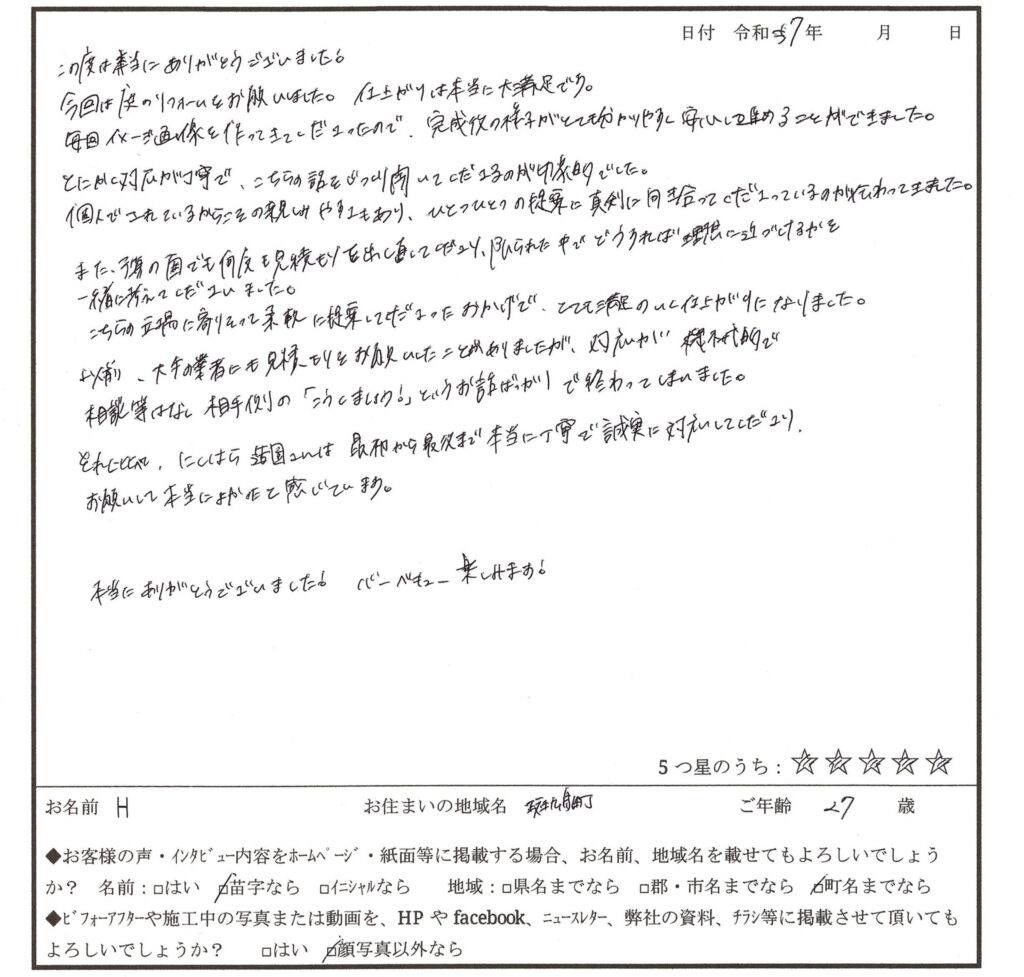 日付 令和 7年 月 日
この度は本当にありがとうございました!
今回は庭のリフォームをお願いしました。 仕上がりは本当に大満足です。
毎回イメージ画像を作ってきてくださったので、完成後の様子がとても分かりやすく安心して進めることができました。
とにかく対応が丁寧で、こちらの話をじっくり聞いてくださるのが印象的でした。
個人でされているからこその親しみやすさもあり、ひとつひとつの提案に真剣に向き合ってくださっているのが伝わってきました。
また、予算の面でも何度も見積もりを出し直してくださり、限られた中でどうすれば理想に近づけるかを
一緒に考えてくださいました。
こちらの立場に寄りそって柔軟に提案してくださったおかげで、とても満足のいく仕上がりになりました。
以前、大手の業者にも見積もりをお願いしたことがありましたが、対応が機械的で
相談等はなし 相手側の「こうしましょう!」というお話ばっかりで終わってしまいました。
それに比べ、にしはら造園さんは最初から最後まで本当に丁寧で誠実に対応してくださり、
お願いして本当によかったと感じています。
本当にありがとうございました! バーベキュー楽しみます!
5つ星のうち:☆☆☆☆☆
お名前 H お住まいの地域名 町 ご年齢 27 歳
◆お客様の声・インタビュー内容をホームページ・紙面等に掲載する場合、お名前、地域名を載せてもよろしいでしょう
か? 名前:□はい ☑苗字なら □イニシャルなら 地域:□県名までなら □郡・市名までなら ☑町名までなら
◆ビフォーアフターや施工中の写真または動画を、HPやfacebook、ニュースレター、弊社の資料、チラシ等に掲載させて頂いても
よろしいでしょうか? □はい ☑顔写真以外なら